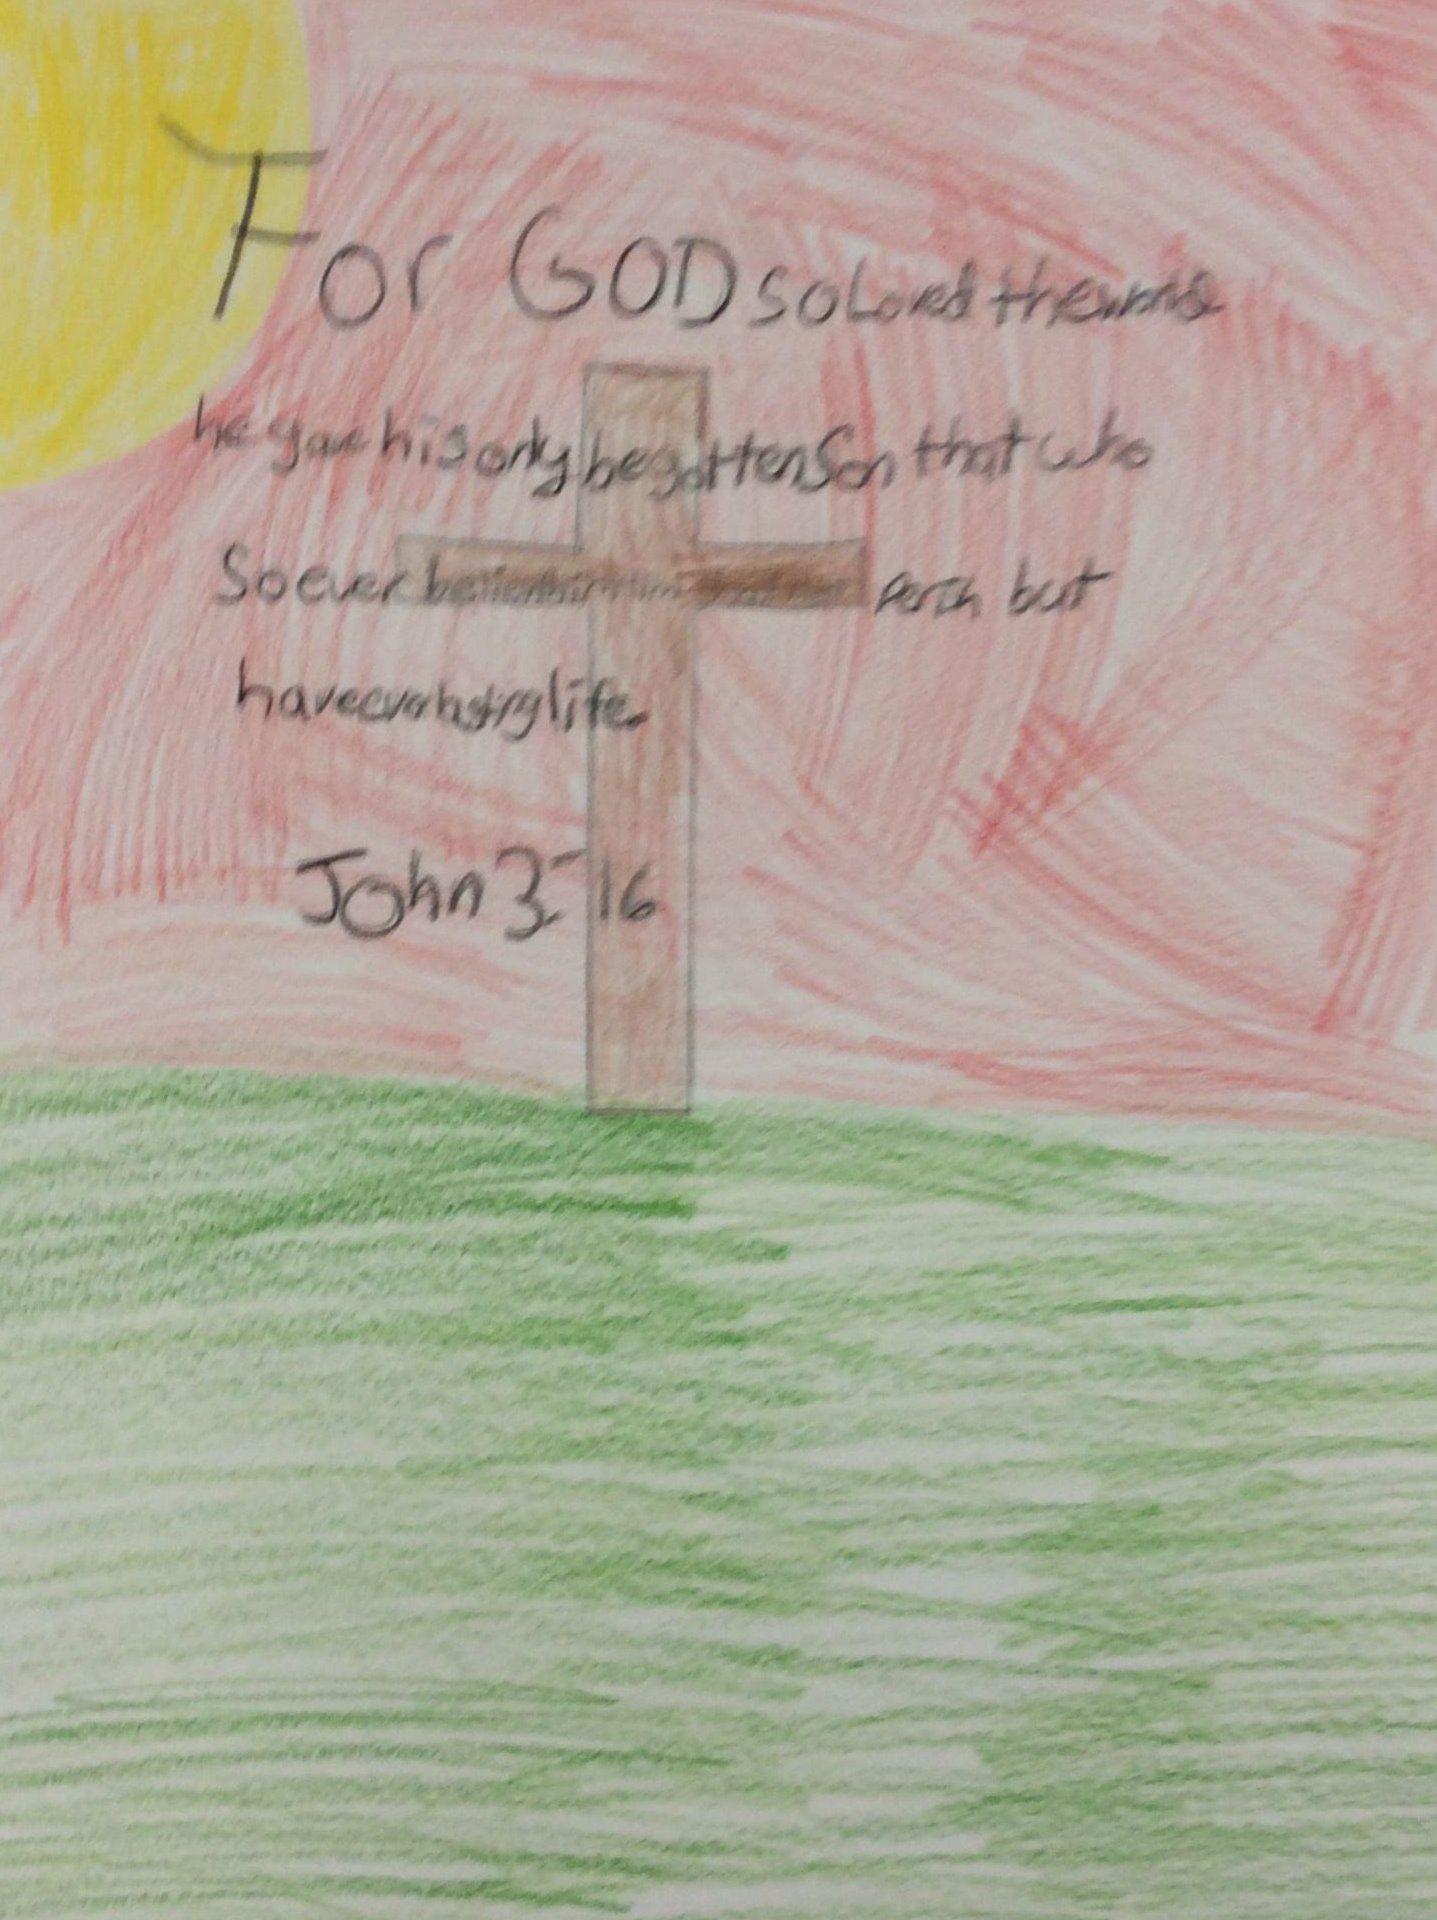 For GOD so Loved the world
he gave his only begotten Son that who
So ever believeth in him shall not perish but
have everlasting life.
John 3:16